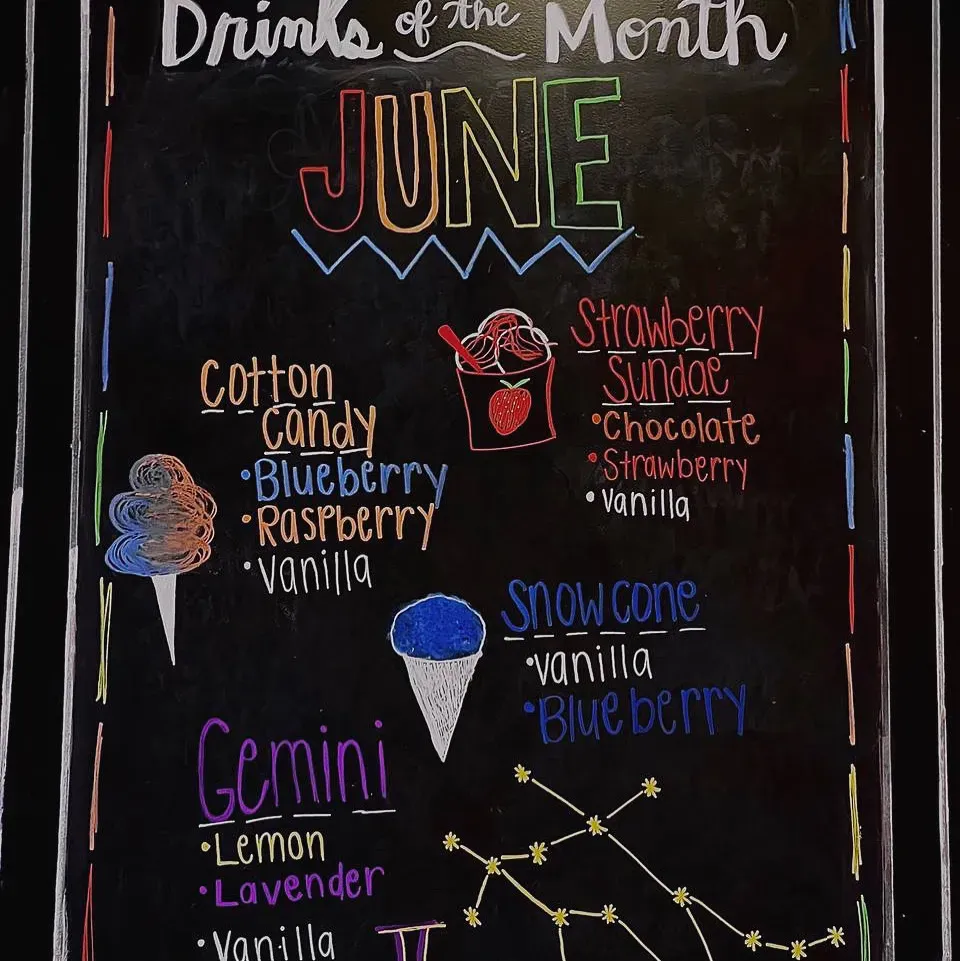 Drinks of the Month
JUNE
Cotton
Candy
•Blueberry
•Raspberry
•Vanilla
Strawberry
Sundae
•Chocolate
•Strawberry
•Vanilla
Snowcone
•Vanilla
•Blueberry
Gemini
•Lemon
•Lavender
•Vanilla